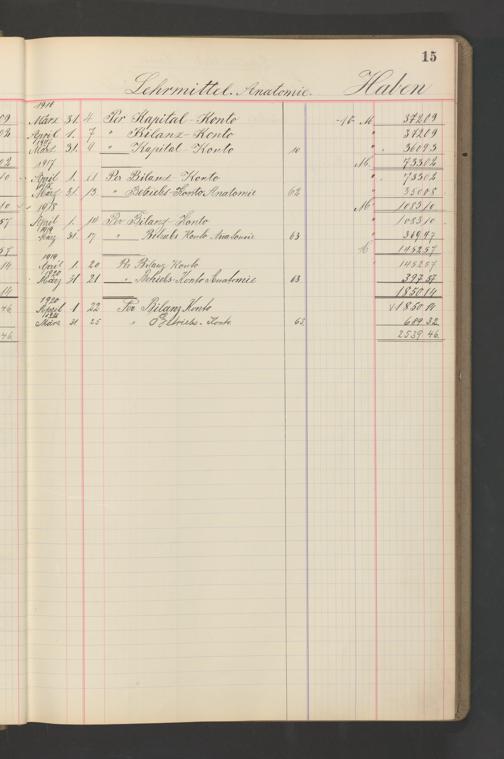 15
Lehrmittel. Anatomie. Haben
1916
März 31. 4 Per Kapital-Konto 10 M. 37209
April 1. 7 " Bilanz-Konto " 37209
1917
März 31. 9 " Kapital-Konto 10 " 36093
1917 M. 73302
April 1. 11 Per Bilanz-Konto " 73302
März 31. 13 " Betriebs-Konto Anatomie 62 " 35008
1918 M 108310
April 1. 10 Per Bilanz-Konto " 108310
1919
31. 17 " Betriebs Konto Anatomie 63 " 36947
1919 M 145257
April 1 20 Per Bilanz Konto " 145257
1920
März 31 21 " Betriebs-Konto Anatomie 63 39757
185014
1920
April 1 22 Per Bilanz Konto 185014
1921
März 31 25 " Betriebs-Konto 65 689.32
2539.46